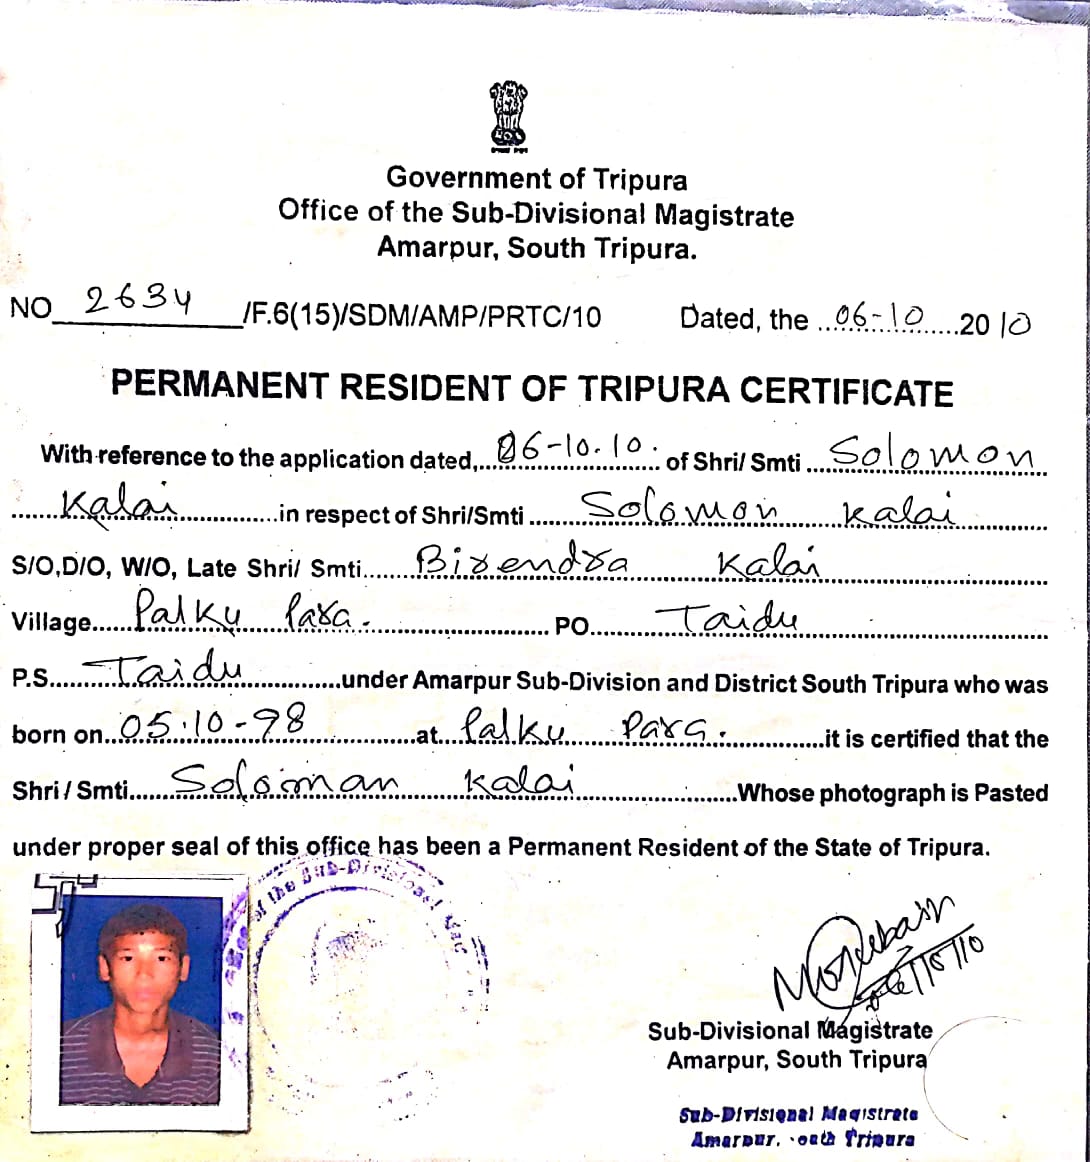 Government of Tripura
Office of the Sub-Divisional Magistrate
Amarpur, South Tripura.
NO 2634 /F.6(15)/SDM/AMP/PRTC/10 Dated, the 06-10 2010
PERMANENT RESIDENT OF TRIPURA CERTIFICATE
With reference to the application dated, 06-10.10. of Shri/ Smti Solomon
Kalai in respect of Shri/Smti Solomon Kalai
S/O,D/O, W/O, Late Shri/ Smti Birendra Kalai
Village Palku Para. PO Taidu
P.S. Taidu under Amarpur Sub-Division and District South Tripura who was
born on 05.10-98 at Palku Para. it is certified that the
Shri / Smti Soloman Kalai Whose photograph is Pasted
under proper seal of this office has been a Permanent Resident of the State of Tripura.
of the Sub-Divisional Mag
Sub-Divisional Magistrate
Amarpur, South Tripura
Sub-Divisional Magistrate
Amarpur, South Tripura